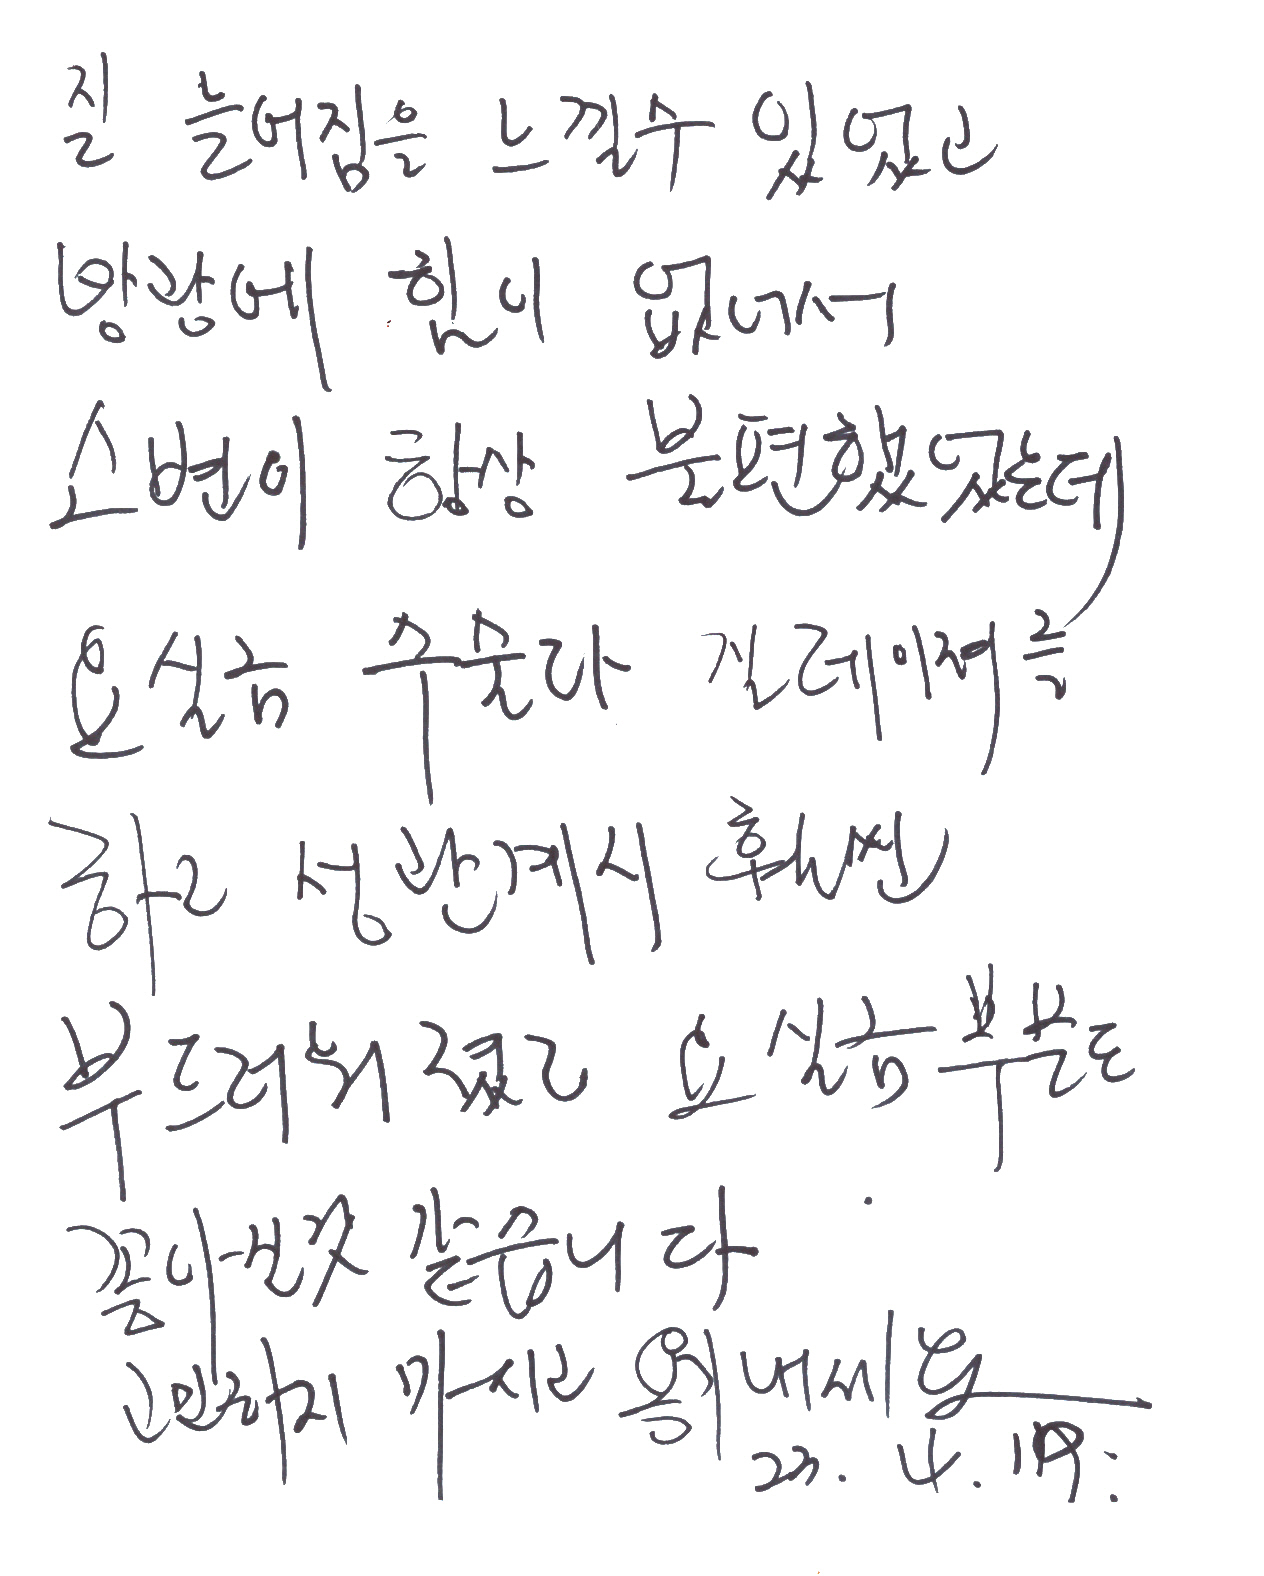 질 늘어짐을 느낄수 있었고
방광에 힘이 없어서
소변이 항상 불편했었는데
요실금 수술과 질레이져를
하고 성관계시 훨씬
부드러워 졌고 요실금 부분도
꼼아진것 같습니다
고민하지 마시고 용기내세요
23. 4. 19.